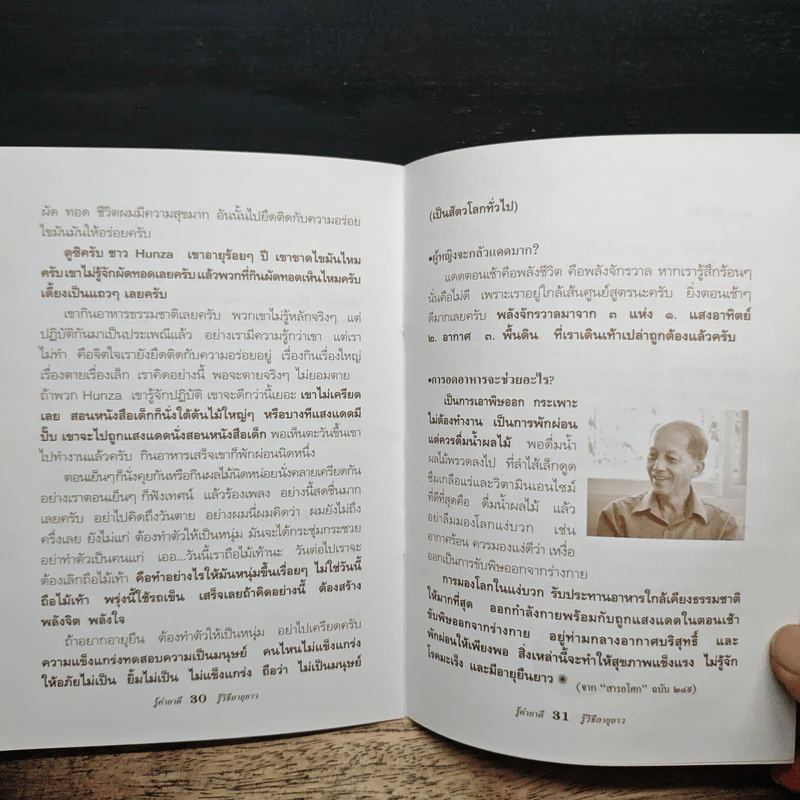 ผัด ทอด ชีวิตผมมีความสุขมาก อันนั้นไปยึดติดกับความอร่อย
ไขมันมันให้อร่อยครับ
ดูซิครับ ชาว Hunza เขาอายุร้อยๆ ปี เขาขาดไขมันไหม
ครับ เขาไม่รู้จักผัดทอดเลยครับ แล้วพวกที่กินผัดทอดเห็นไหมครับ
เดี้ยงเป็นแถวๆ เลยครับ
เขากินอาหารธรรมชาติเลยครับ พวกเขาไม่รู้หลักจริงๆ แต่
ปฏิบัติกันมาเป็นประเพณีแล้ว อย่างเรามีความรู้กว่าเขา แต่เรา
ไม่ทำ คือจิตใจเรายังยึดติดกับความอร่อยอยู่ เรื่องกินเรื่องใหญ่
เรื่องตายเรื่องเล็ก เราคิดอย่างนี้ พอจะตายจริงๆ ไม่ยอมตาย
ถ้าพวก Hunza เขารู้จักปฏิบัติ เขาจะดีกว่านี้เยอะ เขาไม่เครียด
เลย สอนหนังสือเด็กก็นั่งใต้ต้นไม้ใหญ่ๆ หรือบางทีแสงแดดมี
ปั๊บ เขาจะไปถูกแสงแดดนั่งสอนหนังสือเด็ก พอเห็นตะวันขึ้นเขา
ไปทำงานแล้วครับ กินอาหารเสร็จเขาก็พักผ่อนนิดหนึ่ง
ตอนเย็นๆก็นั่งคุยกันหรือกินผลไม้นิดหน่อยนั่งคลายเครียดกัน
อย่างเราตอนเย็นๆ ก็ฟังเทศน์ แล้วร้องเพลง อย่างนี้สดชื่นมาก
เลยครับ อย่าไปคิดถึงวันตาย อย่างผมนี่ผมคิดว่า ผมยังไม่ถึง
ครึ่งเลย ยังไม่แก่ ต้องทำตัวให้เป็นหนุ่ม มันจะได้กระชุ่มกระชวย
อย่าทำตัวเป็นคนแก่ เออ...วันนี้เราถือไม้เท้านะ วันต่อไปเราจะ
ต้องเลิกถือไม้เท้า คือทำอย่างไรให้มันหนุ่มขึ้นเรื่อยๆ ไม่ใช่วันนี้
ถือไม้เท้า พรุ่งนี้ใช้รถเข็น เสร็จเลยถ้าคิดอย่างนี้ ต้องสร้าง
พลังจิต พลังใจ
ถ้าอยากอายุยืน ต้องทำตัวให้เป็นหนุ่ม อย่าไปเครียดครับ
ความแข็งแกร่งทดสอบความเป็นมนุษย์ คนไหนไม่แข็งแกร่ง
ให้อภัยไม่เป็น ยิ้มไม่เป็น ไม่แข็งแกร่ง ถือว่า ไม่เป็นมนุษย์
รู้ค่ายาดี 30 รู้วิธีอายุยาว
(เป็นสัตว์โลกทั่วไป)
•ผู้หญิงจะกลัวแดดมาก?
แดดตอนเช้าคือพลังชีวิต คือพลังจักรวาล หากเรารู้สึกร้อนๆ
นั่นคือไม่ดี เพราะเราอยู่ใกล้เส้นศูนย์สูตรนะครับ ยิ่งตอนเช้าๆ
ดีมากเลยครับ พลังจักรวาลมาจาก ๓ แห่ง ๑. แสงอาทิตย์
๒. อากาศ ๓. พื้นดิน ที่เราเดินเท้าเปล่าถูกต้องแล้วครับ
•การอดอาหารจะช่วยอะไร?
เป็นการเอาพิษออก กระเพาะ
ไม่ต้องทำงาน เป็นการพักผ่อน
แต่ควรดื่มน้ำผลไม้ พอดื่มน้ำ
ผลไม้พรวดลงไป ที่ลำไส้เล็กดูด
ซึมเกลือแร่และวิตามินเอนไซม์
ที่ดีที่สุดคือ ดื่มน้ำผลไม้ แล้ว
อย่าลืมมองโลกแง่บวก เช่น
อากาศร้อน ควรมองแง่ดีว่า เหงื่อ
ออกเป็นการขับพิษออกจากร่างกาย
การมองโลกในแง่บวก รับประทานอาหารใกล้เคียงธรรมชาติ
ให้มากที่สุด ออกกำลังกายพร้อมกับถูกแสงแดดในตอนเช้า
ขับพิษออกจากร่างกาย อยู่ท่ามกลางอากาศบริสุทธิ์ และ
พักผ่อนให้เพียงพอ สิ่งเหล่านี้จะทำให้สุขภาพแข็งแรง ไม่รู้จัก
โรคมะเร็ง และมีอายุยืนยาว ◉
(จาก "สารอโศก" ฉบับ ๒๔๙)
รู้ค่ายาดี 31 รู้วิธีอายุยาว